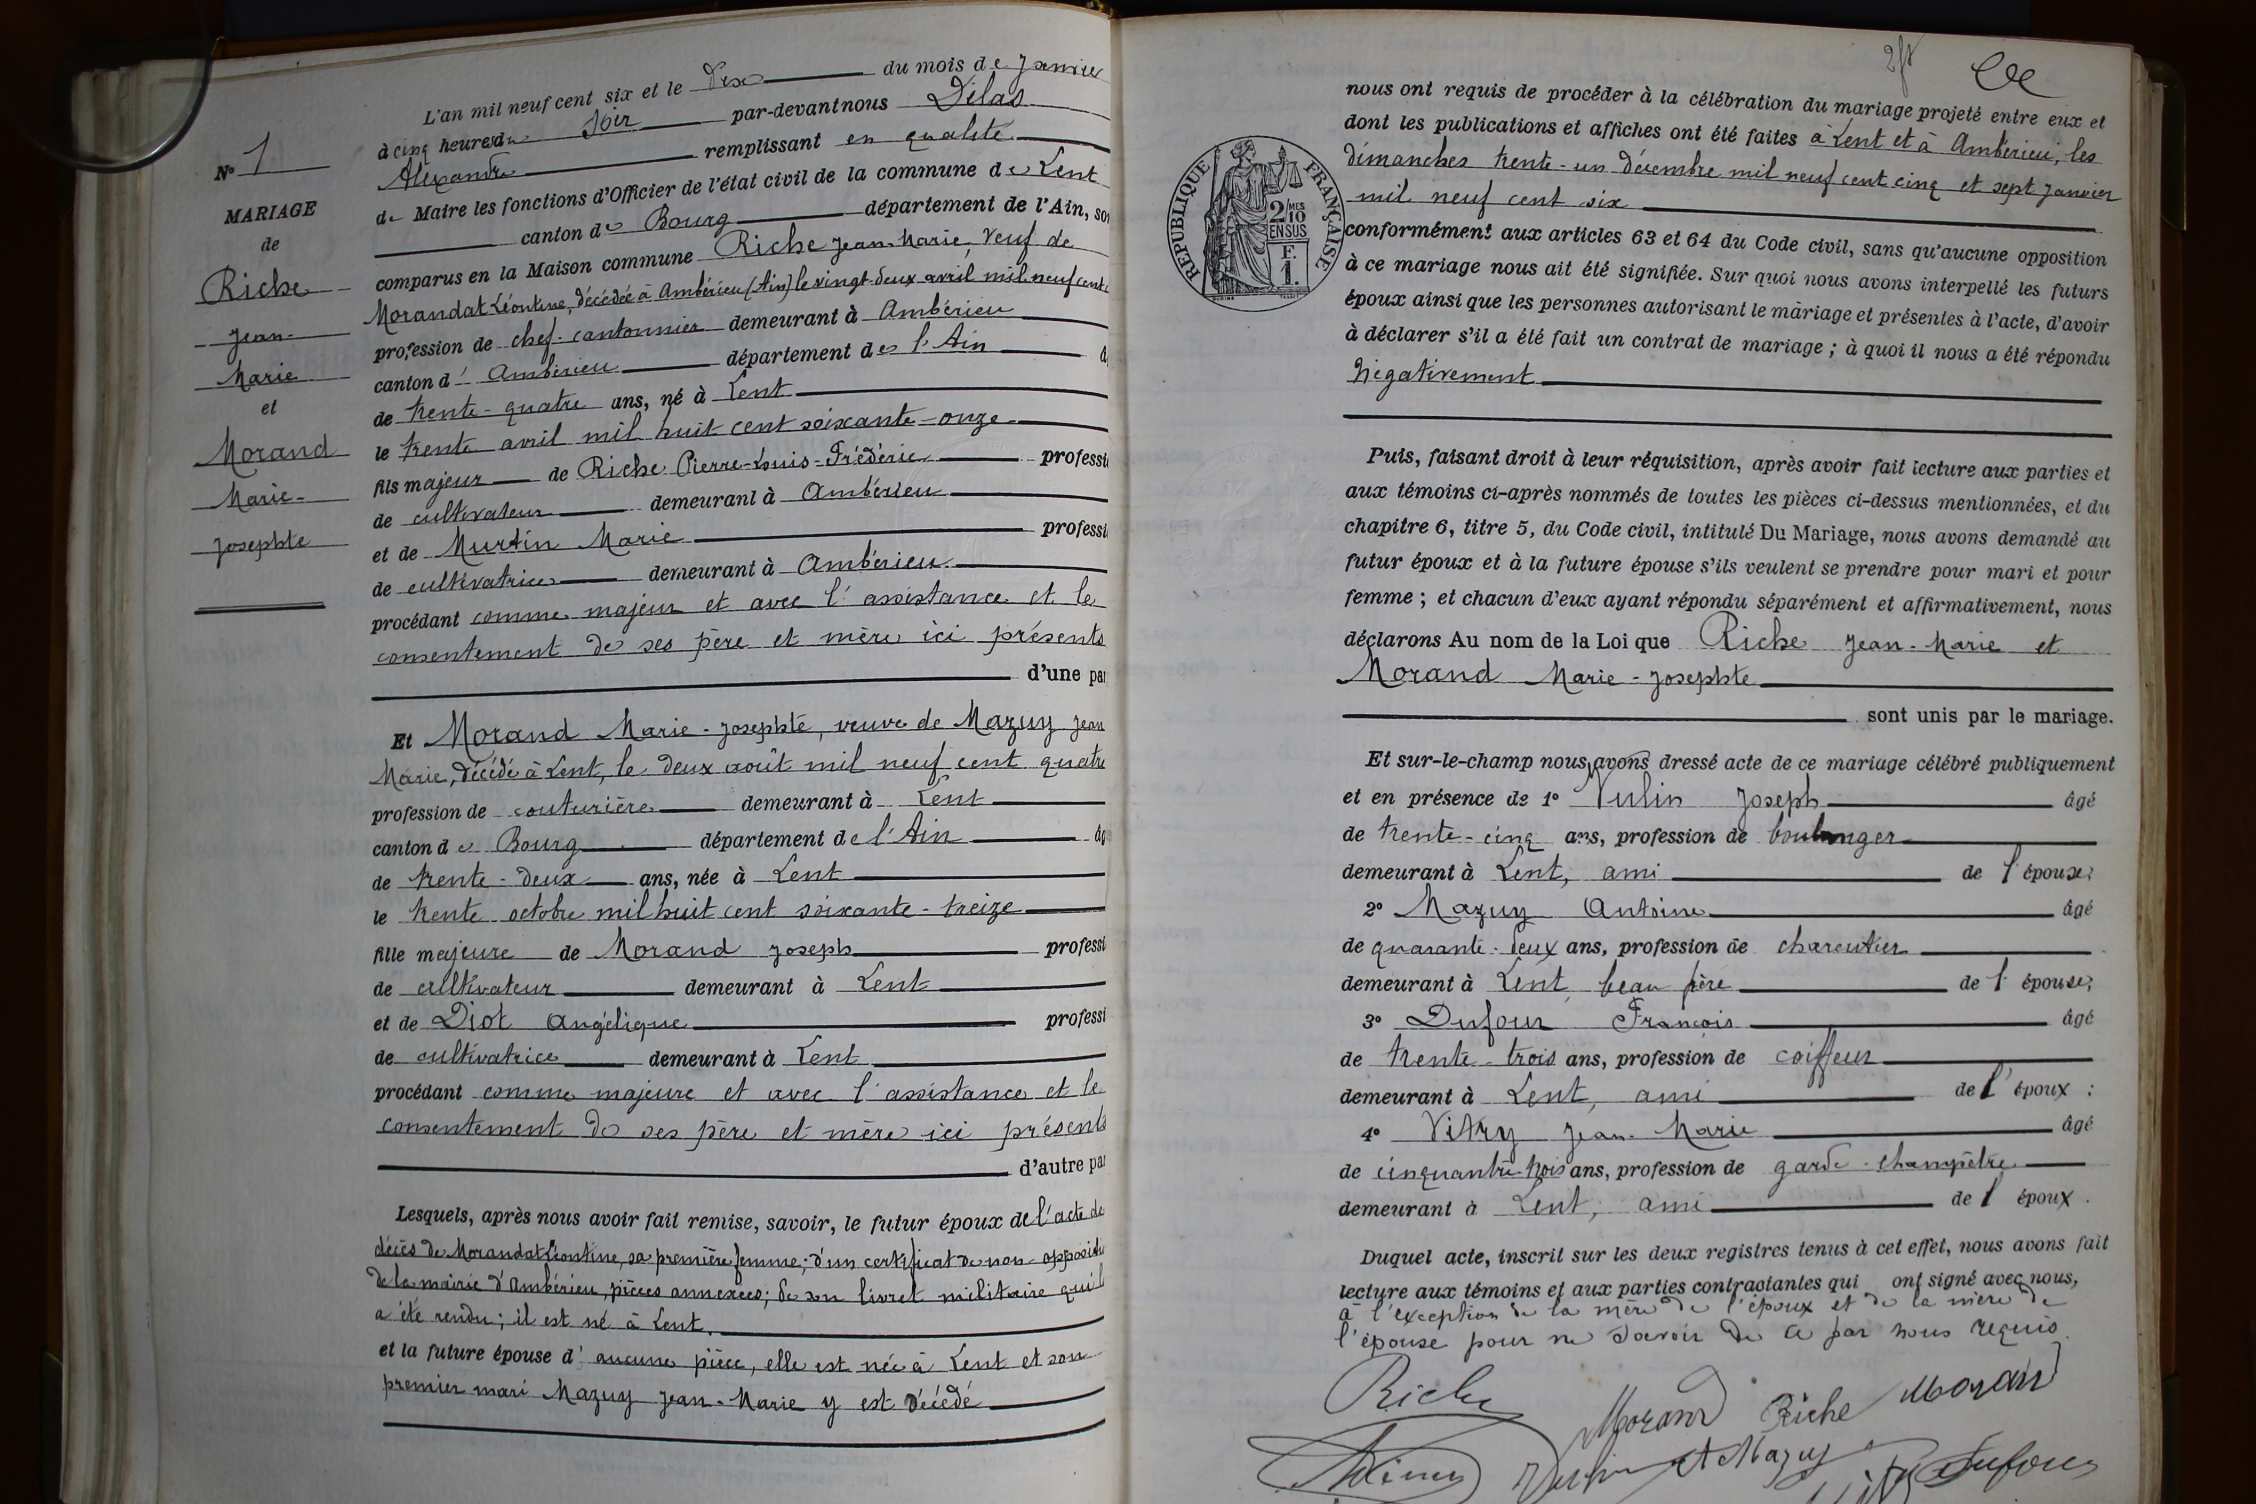 L'an mil neuf cent six et le dix du mois de Janvier
à cinq heures du soir par-devant nous Délas
Alexandre remplissant en qualité
de Maire les fonctions d'Officier de l'état civil de la commune de Lent
canton de Bourg département de l'Ain, so
comparus en la Maison commune Riche Jean-Marie, veuf de
Morandat Léontine, décédée à Ambérieu (Ain) le vingt-deux avril mil neuf cent
profession de chef-cantonnier demeurant à Ambérieu
canton d' Ambérieu département de l'Ain
de trente-quatre ans, né à Lent
le trente avril mil huit cent soixante-onze
fils majeur de Riche Pierre-Louis-Frédéric professi
de cultivateur demeurant à Ambérieu
et de Murtin Marie professi
de cultivatrice demeurant à Ambérieu
procédant comme majeur et avec l'assistance et le
consentement de ses père et mère ici présents
d'une par
Et Morand Marie-Josephte, veuve de Mazuy Jean
Marie, décédé à Lent, le deux août mil neuf cent quatre
profession de couturière demeurant à Lent
canton de Bourg département de l'Ain âg
de trente-deux ans, née à Lent
le trente octobre mil huit cent soixante-treize
fille majeure de Morand Joseph professi
de cultivateur demeurant à Lent
et de Diot Angélique professi
de cultivatrice demeurant à Lent
procédant comme majeure et avec l'assistance et le
consentement de ses père et mère ici présents
d'autre par
Lesquels, après nous avoir fait remise, savoir, le futur époux de l'acte de
décès de Morandat Léontine, sa première femme; d'un certificat de non-opposition
de la mairie d'Ambérieu, pièces annexées; de son livret militaire qui l
a été rendu; il est né à Lent.
et la future épouse d' aucune pièce, elle est née à Lent et son
premier mari Mazuy Jean-Marie y est décédé
N° 1
MARIAGE
de
Riche
Jean-
Marie
et
Morand
Marie-
Josephte
nous ont requis de procéder à la célébration du mariage projeté entre eux et
dont les publications et affiches ont été faites à Lent et à Ambérieu, les
dimanches trente-un décembre mil neuf cent cinq et sept janvier
mil neuf cent six
conformément aux articles 63 et 64 du Code civil, sans qu'aucune opposition
à ce mariage nous ait été signifiée. Sur quoi nous avons interpellé les futurs
époux ainsi que les personnes autorisant le mariage et présentes à l'acte, d'avoir
à déclarer s'il a été fait un contrat de mariage; à quoi il nous a été répondu
négativement
RÉPUBLIQUE FRANÇAISE
2/10 MES
EN SUS
F.
1.
Puis, faisant droit à leur réquisition, après avoir fait lecture aux parties et
aux témoins ci-après nommés de toutes les pièces ci-dessus mentionnées, et du
chapitre 6, titre 5, du Code civil, intitulé Du Mariage, nous avons demandé au
futur époux et à la future épouse s'ils veulent se prendre pour mari et pour
femme; et chacun d'eux ayant répondu séparément et affirmativement, nous
déclarons Au nom de la Loi que Riche Jean-Marie et
Morand Marie-Josephte
sont unis par le mariage.
Et sur-le-champ nous avons dressé acte de ce mariage célébré publiquement
et en présence de 1° Vulin Joseph âgé
de trente-cinq ans, profession de boulanger
demeurant à Lent, ami de l'épouse;
2° Mazuy Antoine âgé
de quarante-deux ans, profession de charcutier
demeurant à Lent, beau frère de l'épouse;
3° Dufour François âgé
de trente-trois ans, profession de coiffeur
demeurant à Lent, ami de l'époux:
4° Vitry Jean-Marie âgé
de cinquante-trois ans, profession de garde-champêtre
demeurant à Lent, ami de l'époux.
Duquel acte, inscrit sur les deux registres tenus à cet effet, nous avons fait
lecture aux témoins et aux parties contractantes qui ont signé avec nous,
à l'exception de la mère de l'époux et de la mère de
l'épouse pour ne savoir de ce par nous requis
Riche Morand Riche Morand
Vulin A Mazuy Dufour